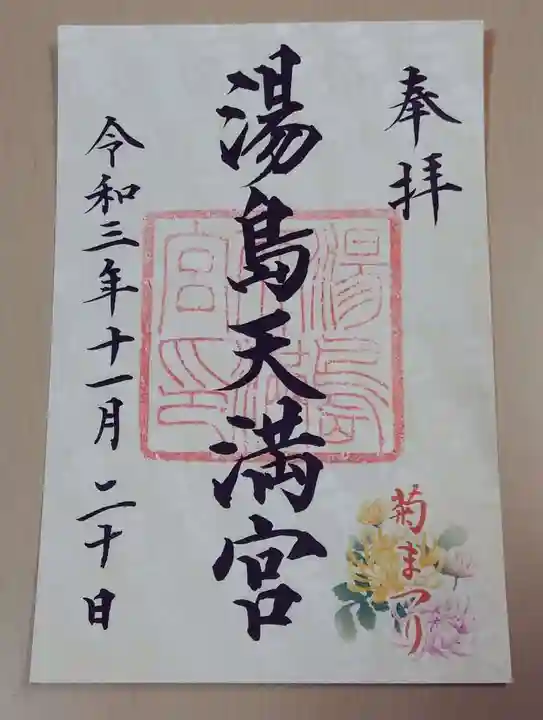 奉拝
湯島天満宮
湯島天満宮印
菊まつり
令和三年十一月二十日